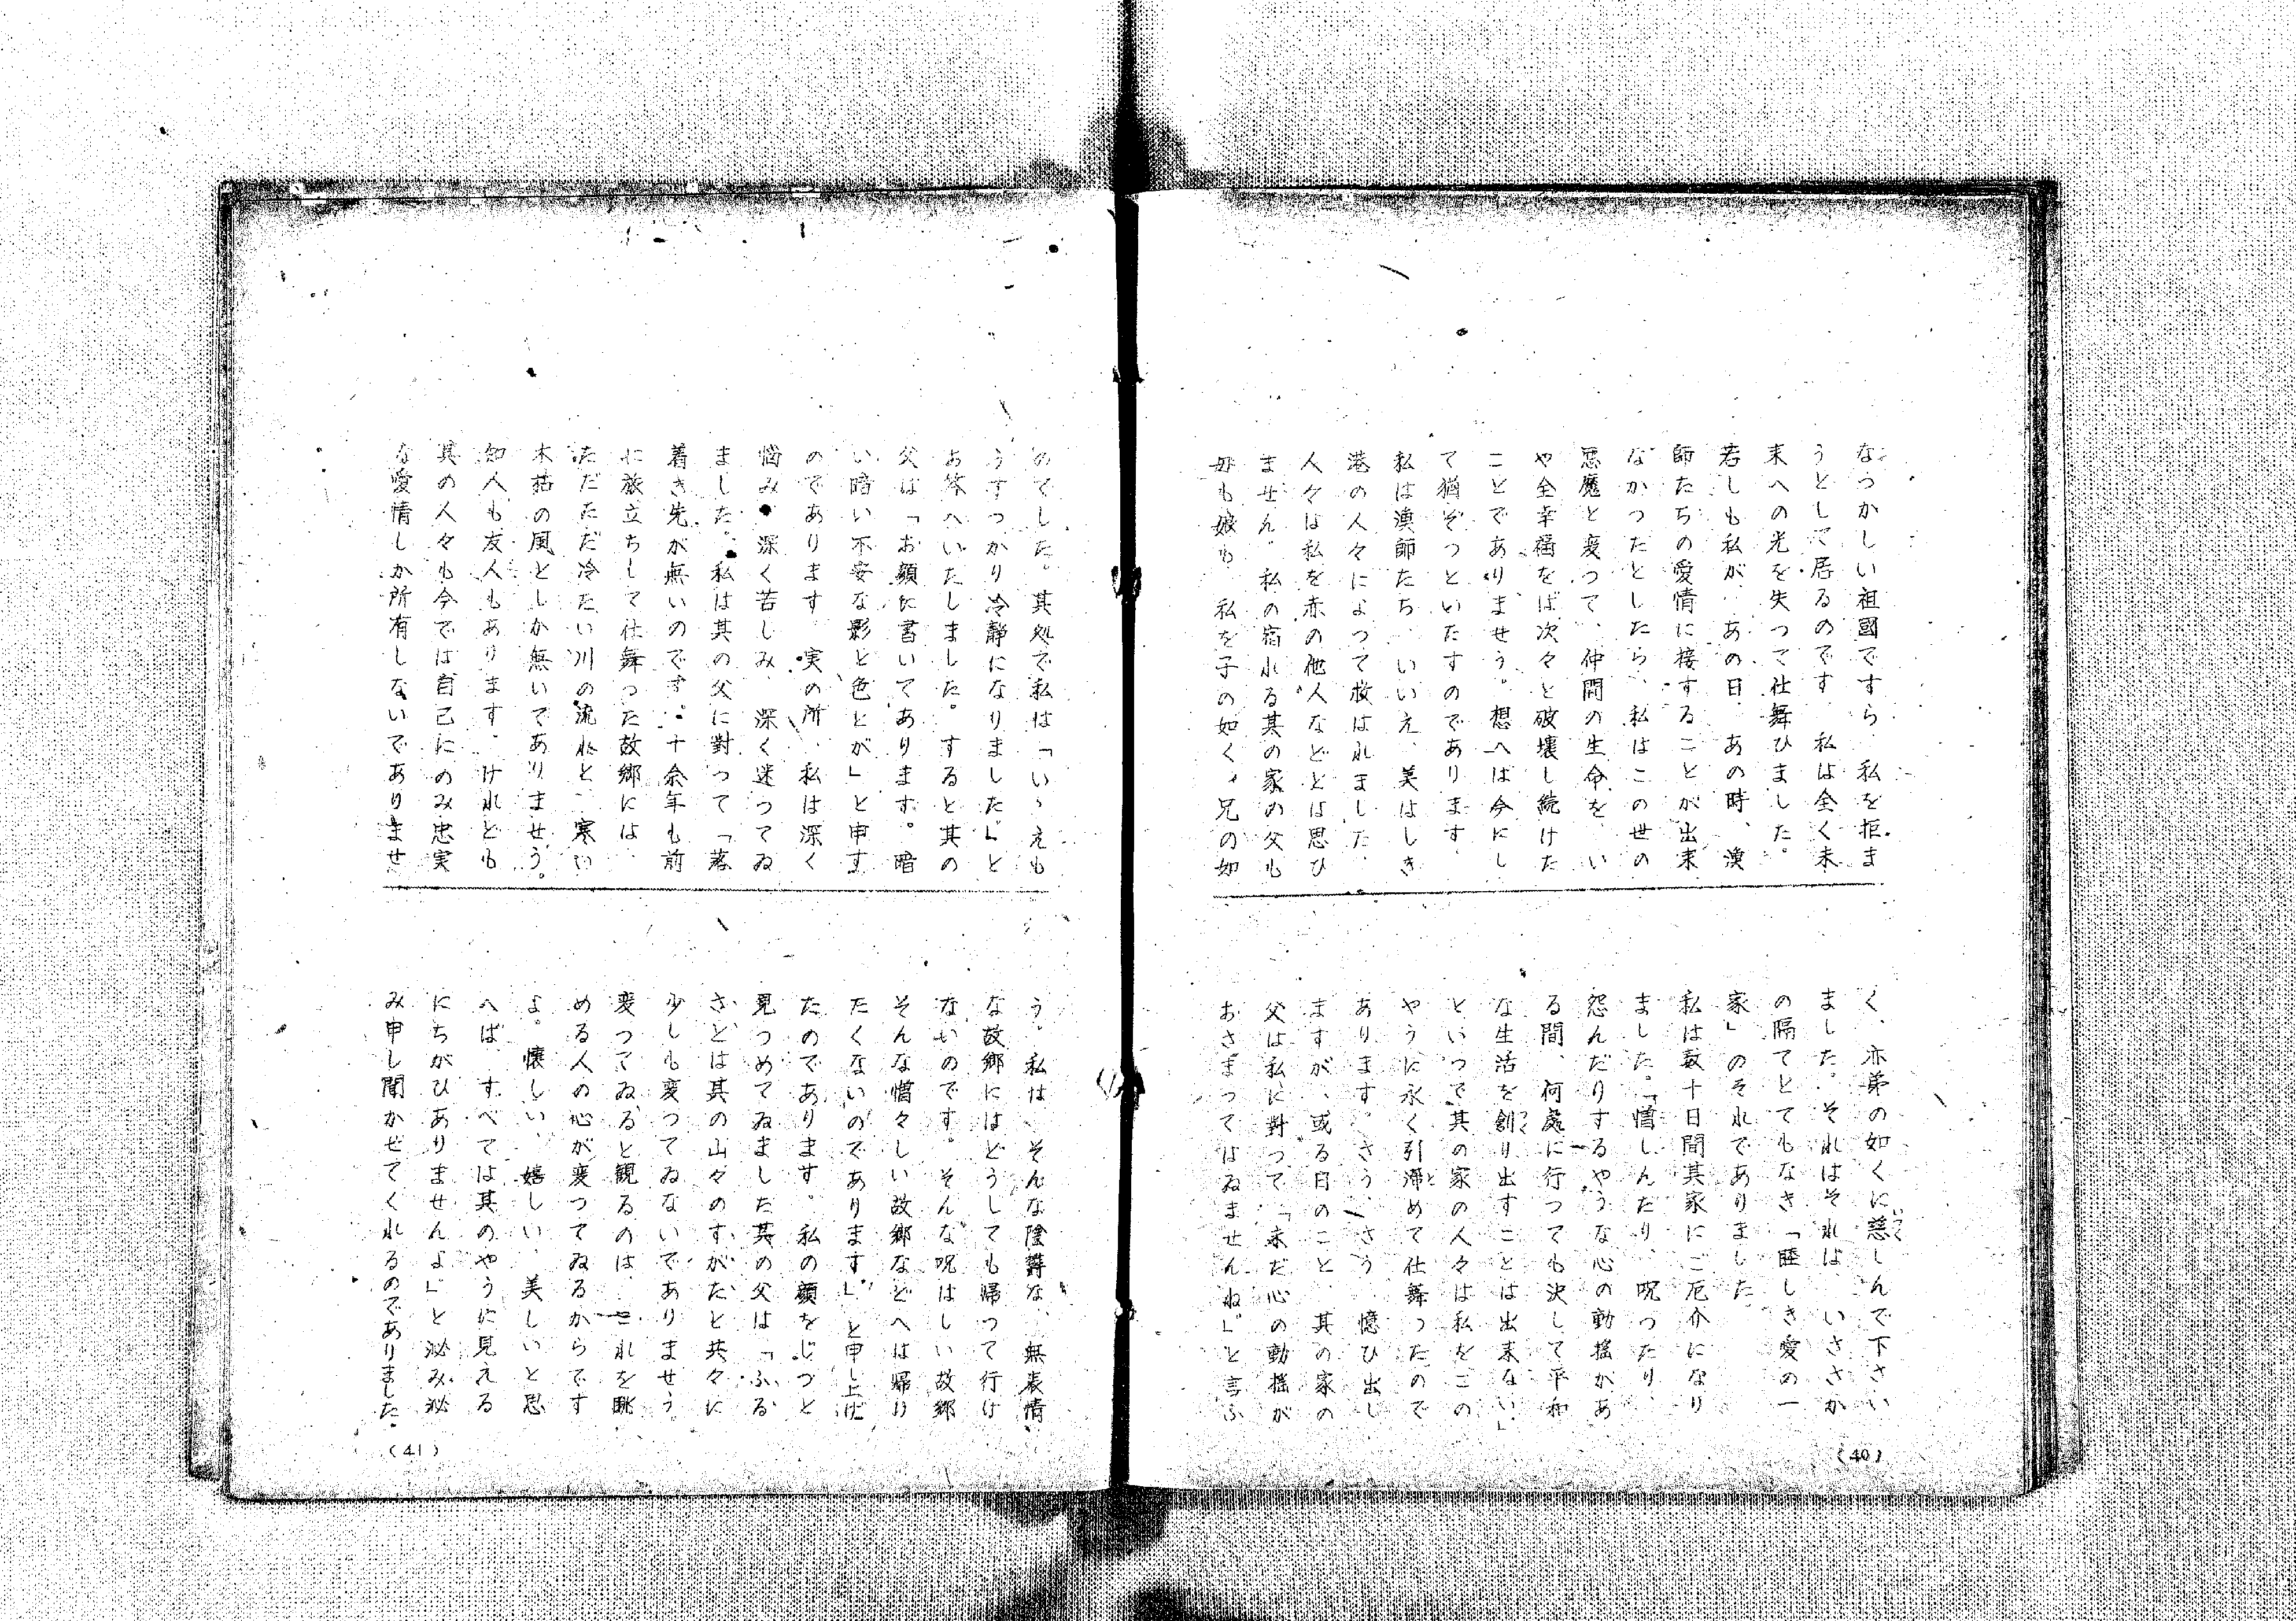 なつかしい祖國ですら、私を拒ま
うとして居るのです。私は全く未
来への光を失つて仕舞ひました。
若しも私が、あの日、あの時、漁
師たちの愛情に接することが出来
なかつたとしたら、私はこの世の
悪魔と変つて、仲間の生命を、い
や全幸福をば次々と破壊し続けた
ことでありませう。想へば今にし
て猶ぞつといたすのであります。
私は漁師たち、いいえ、美はしき
港の人々によつて救はれました。
人々は私を赤の他人などとは思ひ
ません。私の宿れる其の家の父も
母も娘も、私を子の如く、兄の如
く、亦弟の如くに慈しんで下さい
ました。それはそれは、いささか
の隔てとてもなき「睦しき愛の一
家」のそれでありました。
私は数十日間其家にご厄介になり
ました。「憎しんだり、呪つたり、
怨んだりするやうな心の動揺があ
る間、何處に行つても決して平和
な生活を創り出すことは出来ない」
といつて其の家の人々は私をこの
やうに永く引滞めて仕舞つたので
あります。さう、さう、憶ひ出し
ますが、或る日のこと、其の家の
父は私に對つて「未だ心の動揺が
おさまつてはゐませんね」と言ふ
(40)
のでした。其処で私は「いゝえも
うすつかり冷静になりました」と
お答へいたしました。すると其の
父は「お顔に書いてあります。暗
い暗い不安な影と色とが」と申す
のであります。実の所、私は深く
悩み深く苦しみ、深く迷つてゐ
ました。私は其の父に對つて「落
着き先が無いのです。十余年も前
に旅立ちして仕舞つた故郷には、
ただただ冷たい川の流れと、寒い
木枯の風としか無いでありませう。
知人も友人もあります。けれども
其の人々も今では自己にのみ忠実
な愛情しか所有しないでありませ
う。私は、そんな陰欝な、無表情
な故郷にはどうしても帰つて行け
ないのです。そんな呪はしい故郷
そんな憎々しい故郷などへは帰り
たくないのであります」と申し上げ
たのであります。私の顔をじつと
見つめてゐました其の父は「ふる
さとは其の山々のすがたと共々に
少しも変つてゐないでありませう。
変つてゐると観るのは、それを眺
める人の心が変つてゐるからです
よ。懐しい、嬉しい、美しいと思
へば、すべては其のやうに見える
にちがひありませんよ」と泌み泌
み申し聞かせてくれるのでありました。
(41)